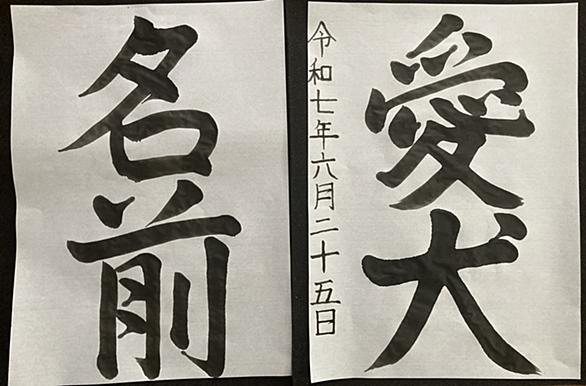 愛犬
令和七年六月二十五日
名前